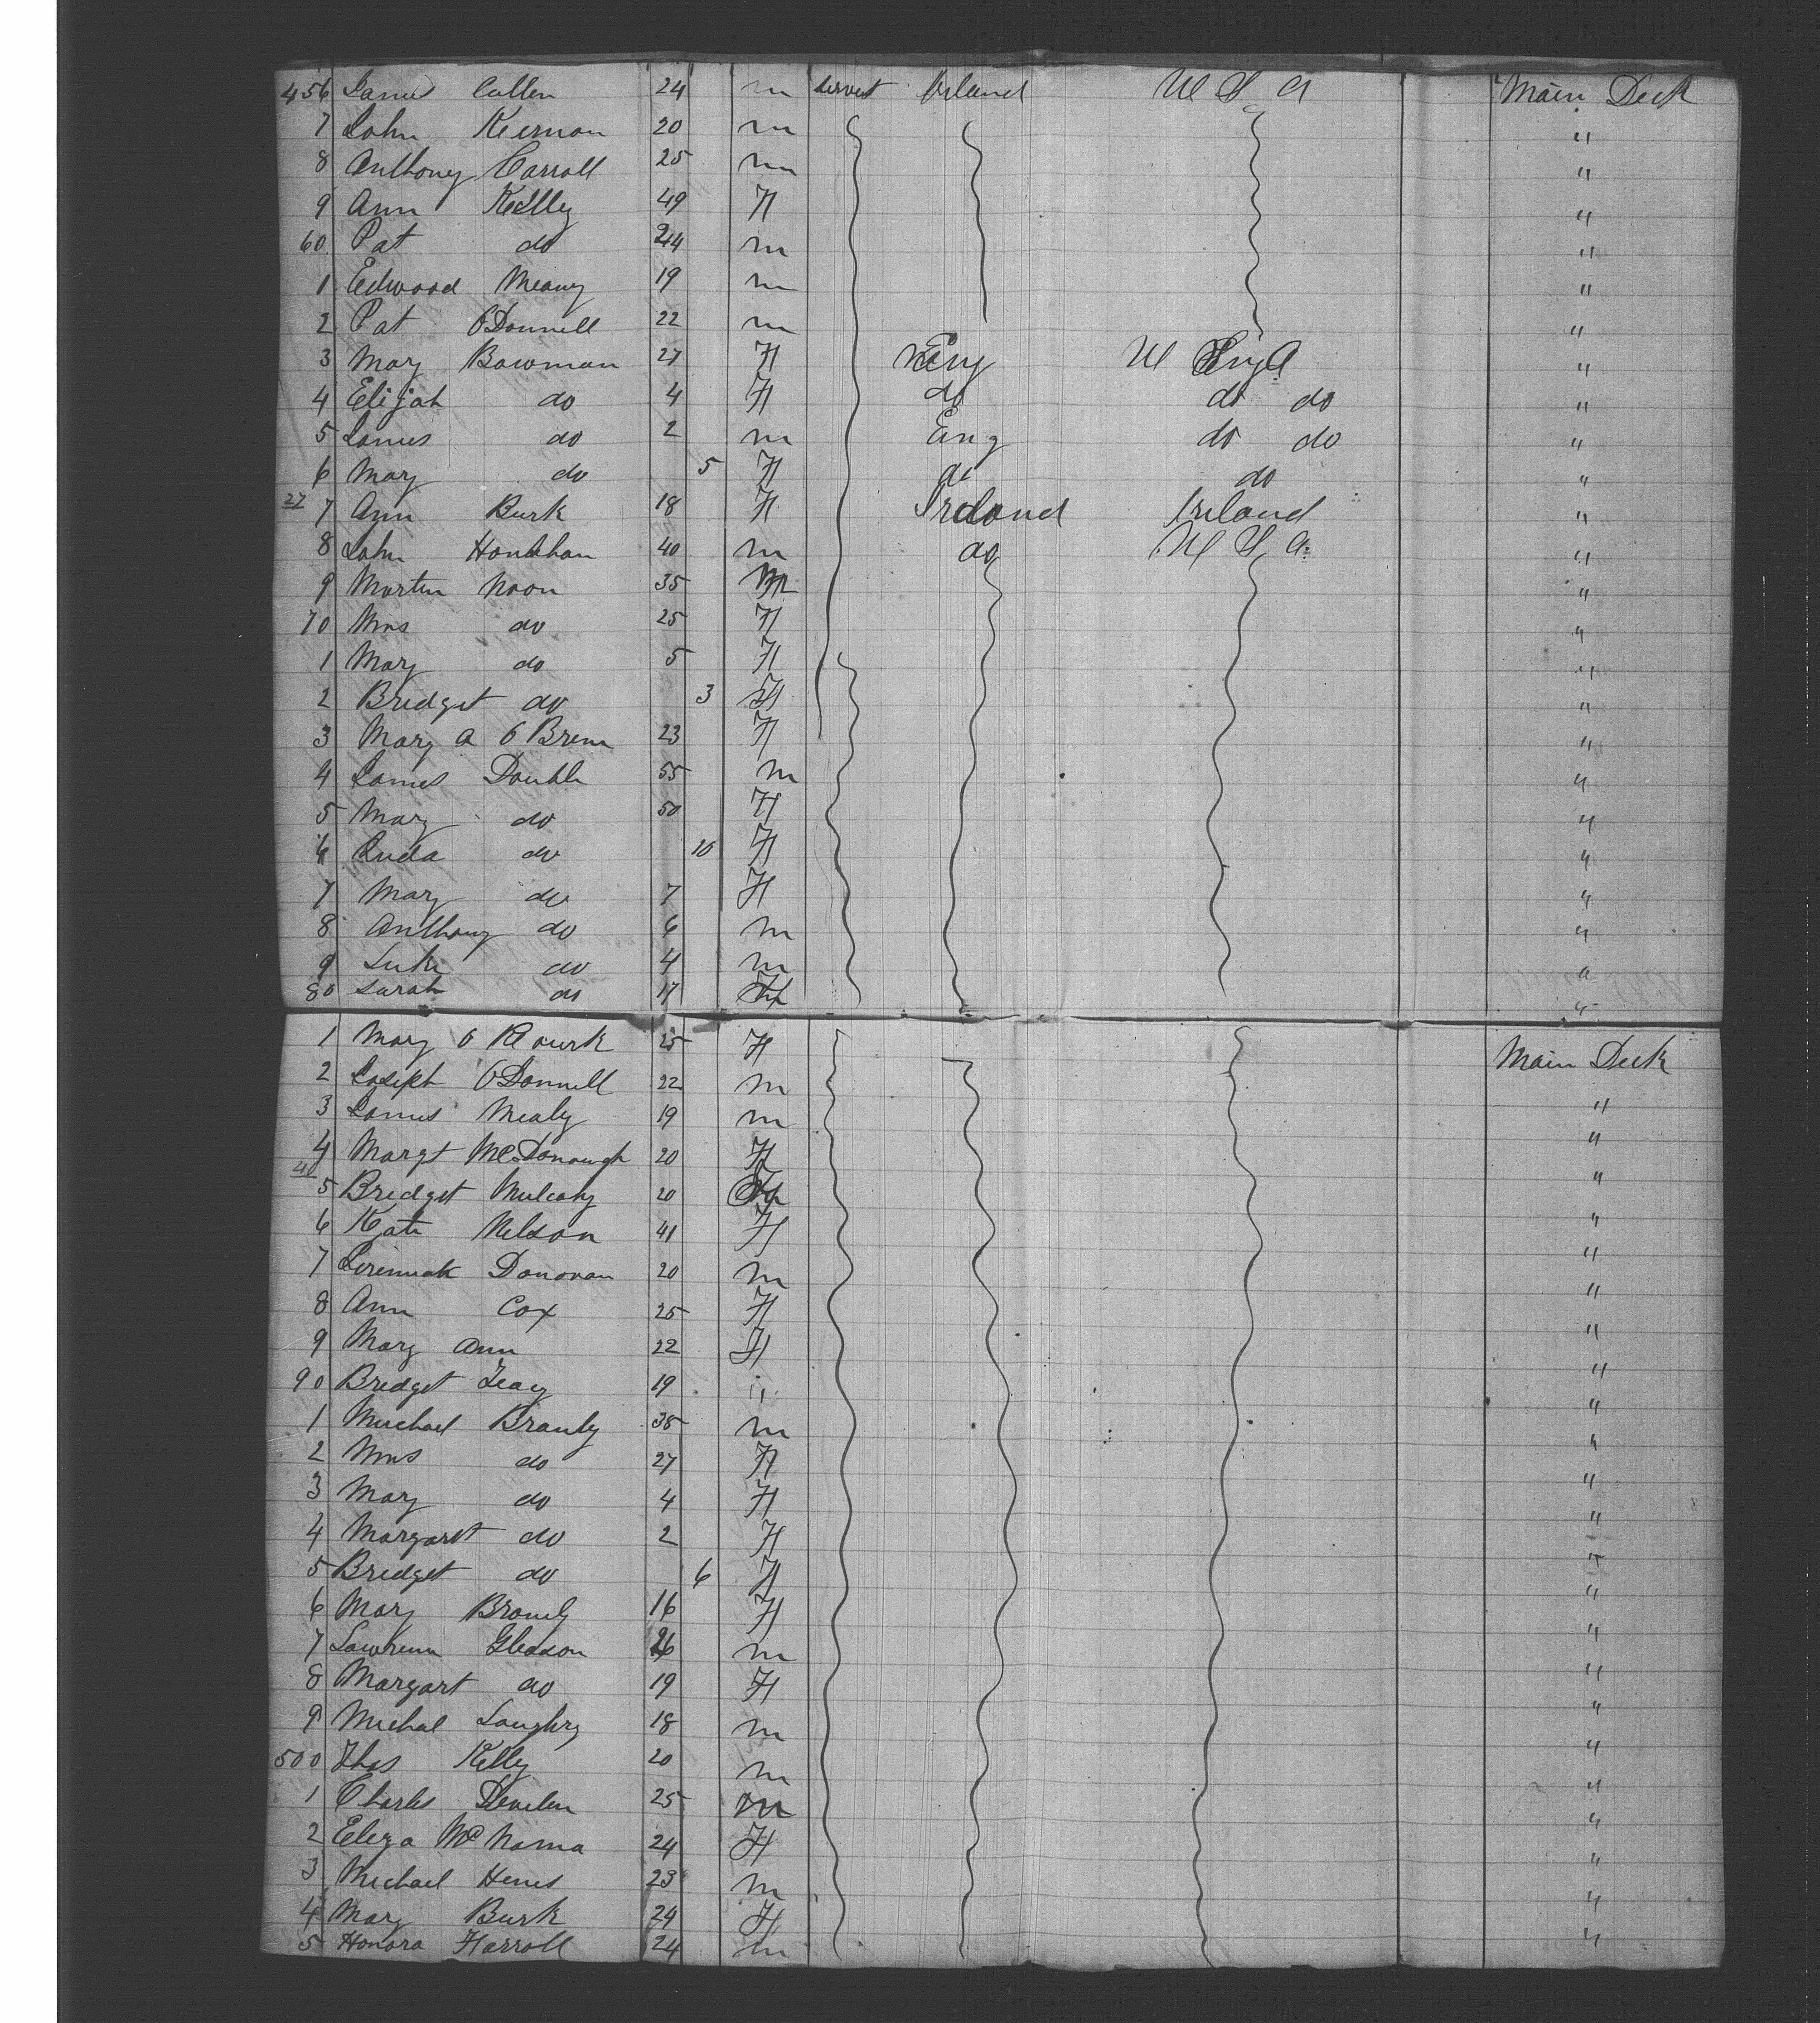 456 James Cullen 24 m servt Irland U S A Main Deck
7 John Kiernan 20 m "
8 Anthony Carroll 25 m "
9 Ann Kelly 49 F "
60 Pat do 24 m "
1 Edward Meany 19 m "
2 Pat O'Donnell 22 m "
3 Mary Bowman 27 F Eng Eng "
4 Elijah do 4 F do do do "
5 James do 2 m Eng do do "
6 Mary do 5 F do do "
27 7 Ann Burk 18 F Ireland Ireland "
8 John 40 m do U S A "
9 Martin Noon 35 M "
70 Mrs do 25 F "
1 Mary do 5 F "
2 Bridget do 3 F "
3 Mary A O Brien 23 F "
4 James Doubln 55 m "
5 Mary do 50 F "
6 do 10 F "
7 Mary do 7 F "
8 Anthony do 6 m "
9 Luke do 4 m "
80 Sarah do 17 F "
1 Mary O Rourk 25 F Main Deck
2 Joseph O'Donnell 22 m "
3 James Mealy 19 m "
4 Margt McDonough 20 F "
41 5 Bridget Mulcahy 20 F "
6 Kate Nelson 41 F "
7 Jeremiah Donovan 20 m "
8 Ann Cox 25 F "
9 Mary Ann 22 F "
90 Bridget 19 " "
1 Michael Branly 38 m "
2 Mrs do 27 F "
3 Mary do 4 F "
4 Margaret do 2 F "
5 Bridget do 6 F "
6 Mary 16 F "
7 Lawrence Gleason 26 m "
8 Margart do 19 F "
9 Michal Loughry 18 m "
500 Thos Kelly 20 m "
1 Charles Develin 25 m "
2 Eliza McNama 24 F "
3 Michael Henes 23 m "
4 Mary Burk 24 F "
5 Honora Farroll 24 m "